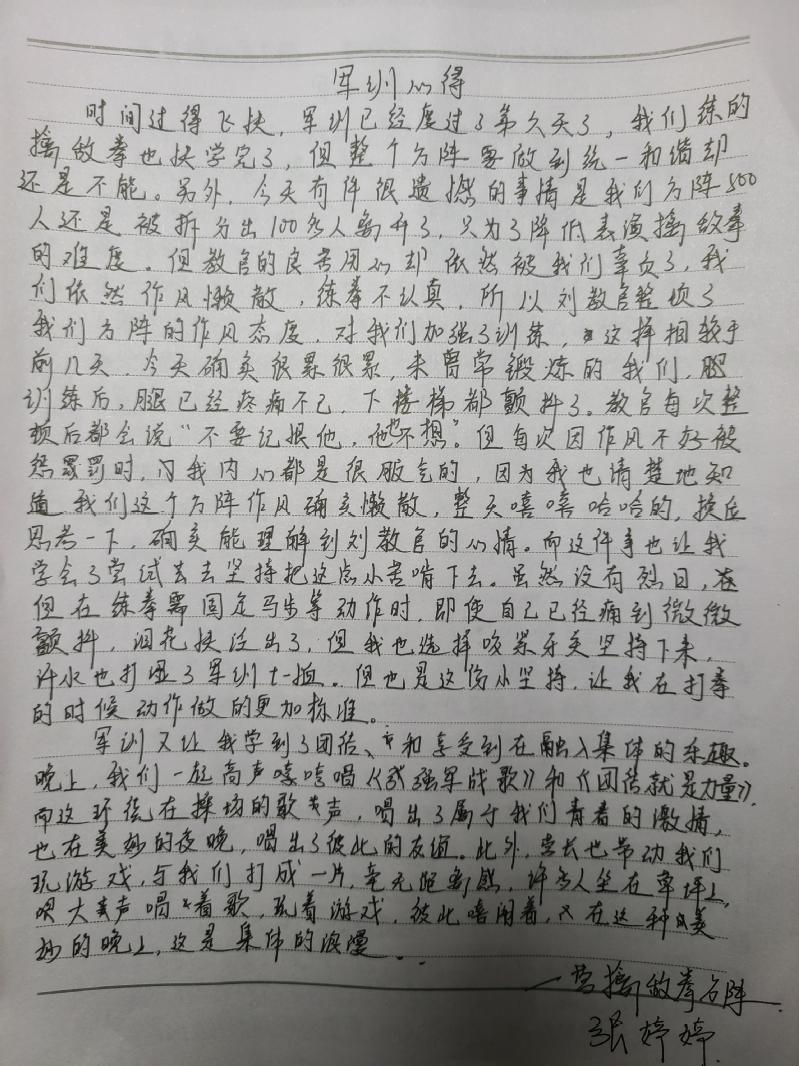 军训心得
时间过得飞快，军训已经度过了第久天了，我们练的
擒敌拳也快学完了，但整个方阵要做到统一和谐却
还是不能。另外，今天有件很遗憾的事情是我们方阵500
人还是被拆分出100多人离开了，只为了降低表演擒敌拳
的难度。但教官的良苦用心却依然被我们辜负了，我
们依然作风懒散，练拳不认真，所以刘教官整顿了
我们方阵的作风态度，对我们加强了训练，这样相较于
前几天，今天确实很累很累，未曾常锻炼的我们，腿
训练后，腿已经疼痛不已，下楼梯都颤抖了。教官每次整
顿后都会说“不要记恨他，他也不想”。但每次因作风不好被
惩罚时，我内心都是很服气的，因为我也清楚地知
道我们这个方阵作风确实懒散，整天嘻嘻哈哈的，换位
思考一下，确实能理解到刘教官的心情。而这件事也让我
学会了尝试去去坚持把这点小苦啃下去。虽然没有烈日，在
但在练拳需固定马步等动作时，即使自己已经痛到微微
颤抖，泪花快泛出了，但我也选择咬紧牙关坚持下来，
汗水也打湿了军训t-恤。但也是这份小坚持，让我在打拳
的时候动作做的更加标准。
军训又让我学到了团结、和享受到在融入集体的乐趣。
晚上，我们一起高声嘹唱《强军战歌》和《团结就是力量》，
而这环绕在操场的歌声，唱出了属于我们青春的激情，
也在美妙的夜晚，唱出了彼此的友谊。此外，连长也带动我们
玩游戏，与我们打成一片，毫无距离感，许多人坐在草坪上，
呗大声唱着歌，玩着游戏，彼此嘻闹着，在这种美
妙的晚上，这是集体的浪漫。
一营擒敌拳方阵
张婷婷